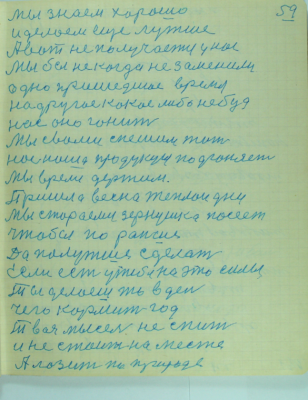 59
Мы знаем хорошо
и делаем еще лутше
А вот не получается у нас
Мы бы некогда не заменили
одно пришедшее время
на другое какое либо небуд
нас оно гонит
Мы сваими спешим тот
нас наша продукция подгоняет
Мы время держим.
Пришла весна теплои дни
Мы стараемся зернушка посеет
Чтобы по раньше
Да полутше сделат
Если ест у тебя на это силы
Ты делаеш то в ден
чего кормит год
Твая мысел не спит
и не стоит на месте
А лазит по природе